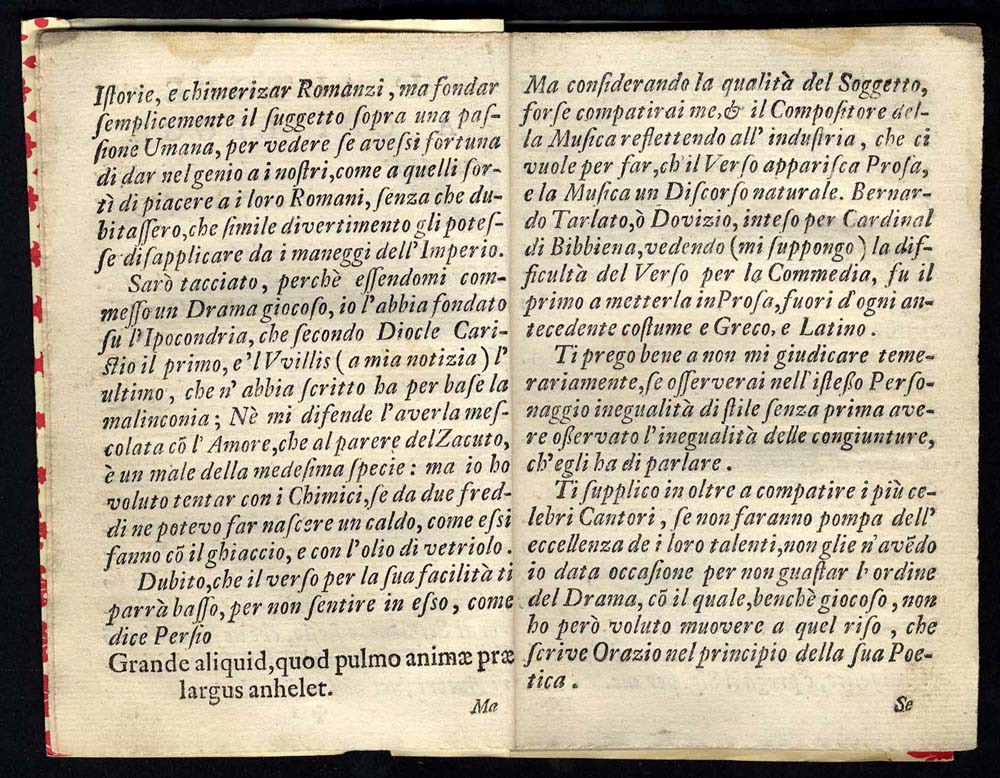 Iſtorie, e chimerizar Romanzi, ma fondar
ſemplicemente il ſuggetto ſopra una paſ-
ſione Umana, per vedere ſe aveſsi fortuna
di dar nel genio a i noſtri, come a quelli ſor-
tì di piacere a i loro Romani, ſenza che du-
bitaſſero, che ſimile divertimento gli poteſ-
ſe diſapplicare da i maneggi dell'Imperio.
Sarò tacciato, perchè eſſendomi com-
meſſo un Drama giocoſo, io l'abbia fondato
ſu l'Ipocondria, che ſecondo Diocle Cari-
ſtio il primo, e'l Vvillis (a mia notizia) l'
ultimo, che n' abbia ſcritto ha per baſe la
malinconia; Nè mi difende l'averla meſ-
colata cõ l' Amore, che al parere del Zacuto,
è un male della medeſima ſpecie: ma io ho
voluto tentar con i Chimici, ſe da due fred-
di ne potevo far naſcere un caldo, come eſsi
fanno cõ il ghiaccio, e con l'olio di vetriolo.
Dubito, che il verſo per la ſua facilità ti
parrà baſſo, per non ſentire in eſſo, come
dice Perſio
Grande aliquid, quod pulmo animæ præ
largus anhelet.
Ma
Ma conſiderando la qualità del Soggetto,
forſe compatirai me, & il Compoſitore del-
la Muſica reflettendo all' induſtria, che ci
vuole per far, ch'il Verſo appariſca Proſa,
e la Muſica un Diſcorſo naturale. Bernar-
do Tarlato, ò Dovizio, inteſo per Cardinal
di Bibbiena, vedendo (mi ſuppongo) la dif-
ficultà del Verſo per la Commedia, fu il
primo a metterla in Proſa, fuori d'ogni an-
tecedente coſtume e Greco, e Latino.
Ti prego bene a non mi giudicare teme-
rariamente, ſe oſſerverai nell'iſteßo Perſo-
naggio inegualità di ſtile ſenza prima ave-
re oßervato l'inegualità delle congiunture,
ch'egli ha di parlare.
Ti ſupplico in oltre a compatire i più ce-
lebri Cantori, ſe non faranno pompa dell'
eccellenza de i loro talenti, non glie n'avẽdo
io data occaſione per non guaſtar l'ordine
del Drama, cõ il quale, benchè giocoſo, non
ho però voluto muovere a quel riſo, che
ſcrive Orazio nel principio della ſua Poe-
tica.
Se